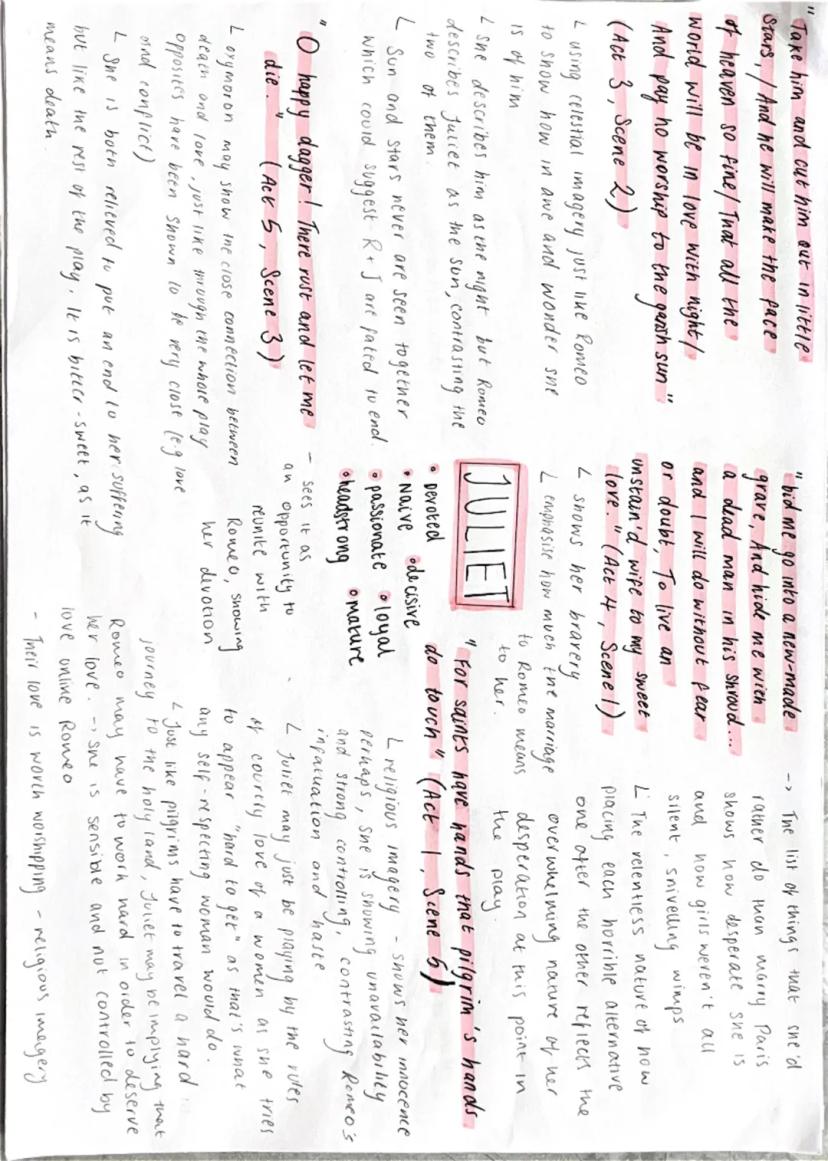 "Take him and cut him out in little
stars, / And he will make the face
of heaven so fine / That all the
world will be in love with night /
And pay no worship to the garish sun"
(Act 3, Scene 2)
L using celestial imagery just like Romeo
to show how in awe and wonder she
is of him
L she describes him as the night but Romeo
describes Juliet as the sun, contrasting the
two of them.
L Sun and stars never are seen together
which could suggest R + J are fated to end.
"O happy dagger! There rust and let me
die." (Act 5, Scene 3)
L oxymoron may show the close connection between
death and love, just like through the whole play
opposites have been shown to be very close (e.g love
and conflict)
L She is both relieved to put an end to her suffering
but like the rest of the play, it is bitter-sweet, as it
means death.
- sees it as
an opportunity to
reunite with
Romeo, showing
her devotion
JULIET
• Devoted
• Naive • decisive
• passionate • loyal
• headstrong • mature
"bid me go into a new-made
grave, And hide me with
a dead man in his shroud...
and I will do without fear
or doubt, To live an
unstain'd wife to my sweet
love." (Act 4, Scene 1)
L shows her bravery
L emphasise how much the marriage
to Romeo means
to her.
-> The list of things that she'd
rather do than marry Paris
shows how desperate she is
and how girls weren't all
silent, snivelling wimps
L The relentless nature of how
placing each horrible alternative
one after the other reflects the
overwhelming nature of her
desperation at this point in
the play.
"For saints have hands that pilgrim's hands
do touch" (Act 1, Scene 5)
L religious imagery - shows her innocence
perhaps, she is showing unavailability
and strong controlling, contrasting Romeo's
infatuation and haste
L Juliet may just be playing by the rules
of courtly love of a women as she tries
to appear "hard to get" as that's what
any self-respecting woman would do.
L Just like pilgrims have to travel a hard
journey to the holy land, Juliet may be implying that
Romeo may have to work hard in order to deserve
her love. -> she is sensible and not controlled by
love unlike Romeo
- Their love is worth worshipping - religious imagery